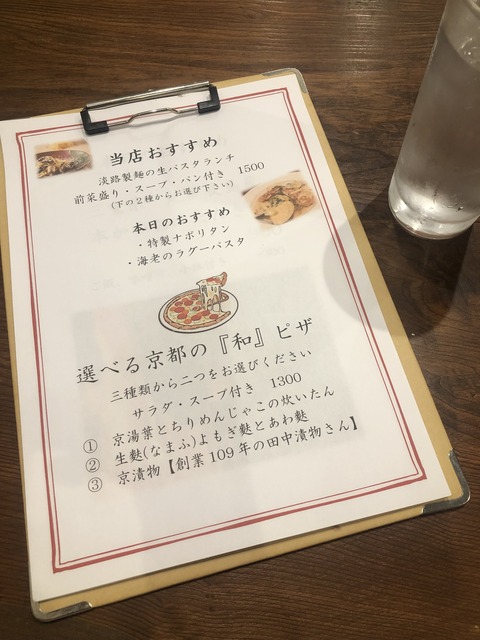 当店おすすめ
淡路製麺の生パスタランチ
前菜盛り・スープ・パン付き 1500
(下の2種からお選び下さい)
本日のおすすめ
・特製ナポリタン
・海老のラグーパスタ
選べる京都の『和』ピザ
三種類から二つをお選びください
サラダ・スープ付き 1300
① 京湯葉とちりめんじゃこの炊いたん
② 生麩(なまふ)よもぎ麩とあわ麩
③ 京漬物【創業109年の田中漬物さん】